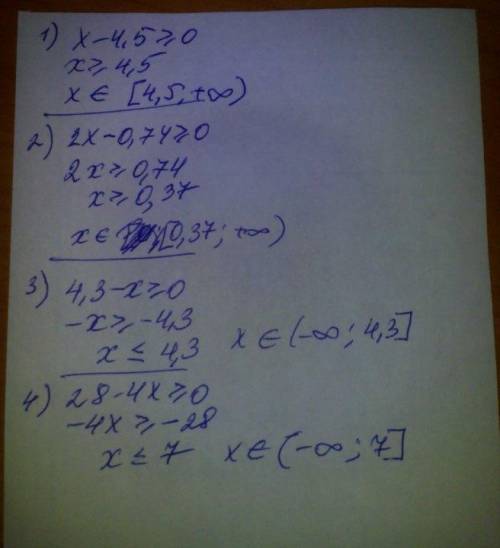 1) x-4,5≥0
x≥4,5
x∈ [4,5;+∞)
2) 2x-0,74≥0
2x≥0,74
x≥0,37
x∈ [0,37; +∞)
3) 4,3-x≥0
-x≥-4,3
x≤4,3 x∈(-∞; 4,3]
4) 28-4x≥0
-4x≥-28
x≤7 x∈(-∞; 7]